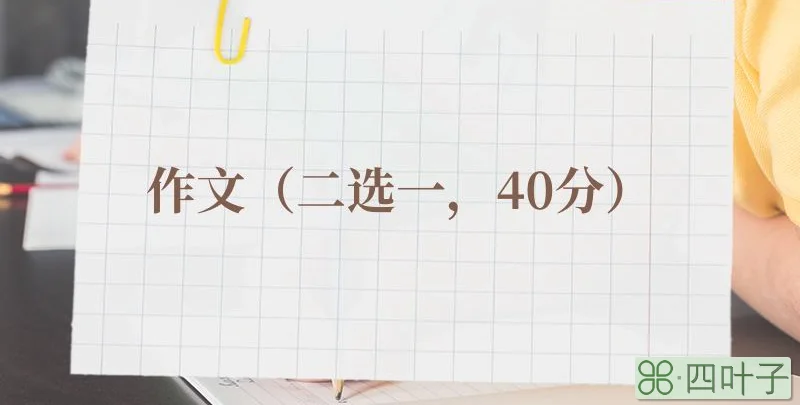 作文（二选一，40分）
四叶子